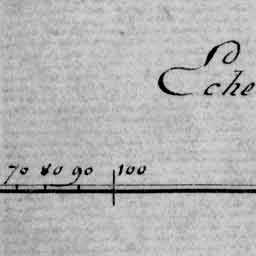 Eche
70 80 90 100